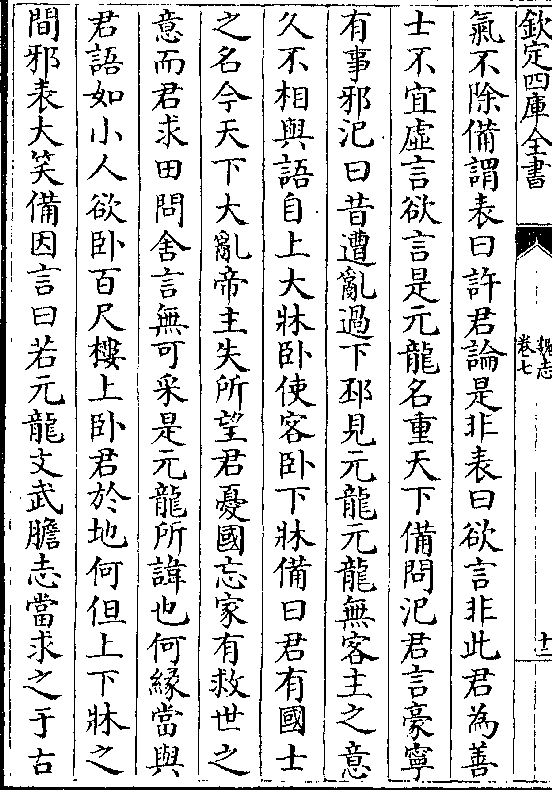 欽定四庫全書
魏志
卷七
十三
氣不除備謂表曰許君論是非表曰欲言非此君為善
士不宜虛言欲言是元龍名重天下備問汜君言豪寧
有事邪汜曰昔遭亂過下邳見元龍元龍無客主之意
久不相與語自上大牀卧使客卧下牀備曰君有國士
之名今天下大亂帝主失所望君憂國忘家有救世之
意而君求田問舍言無可采是元龍所諱也何緣當與
君語如小人欲卧百尺樓上卧君於地何但上下牀之
間邪表大笑備因言曰若元龍文武膽志當求之于古